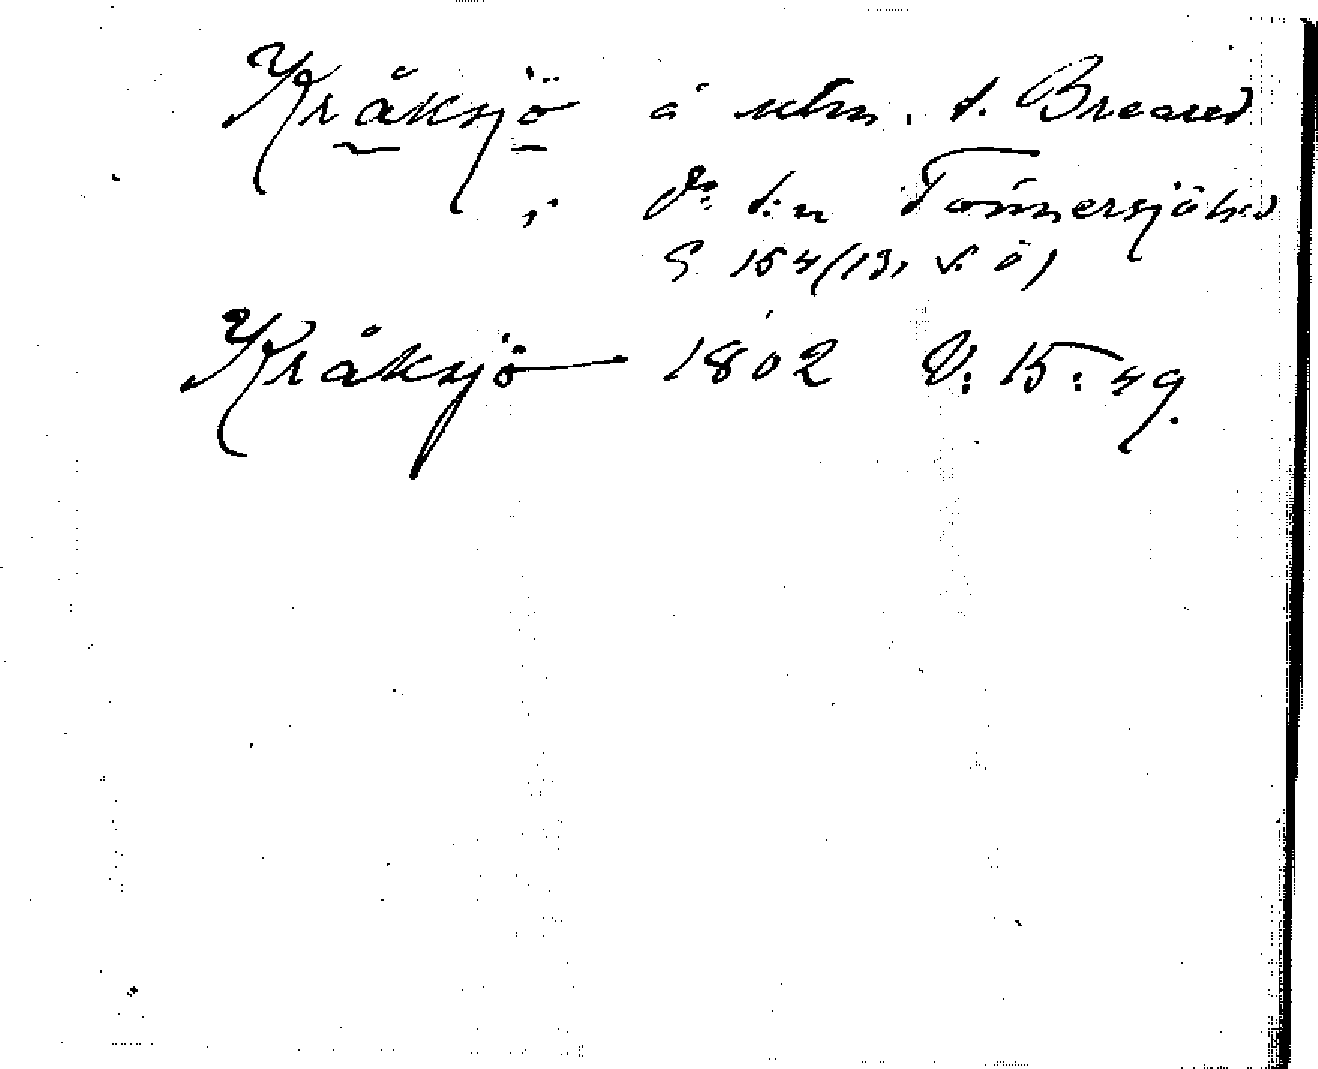 Kråksjö å utm. t. Breared
i Jä: t:n Tönnersjö hd
S 154 (19, v. ö)
Kråksjö 1802 V: 15: 49.